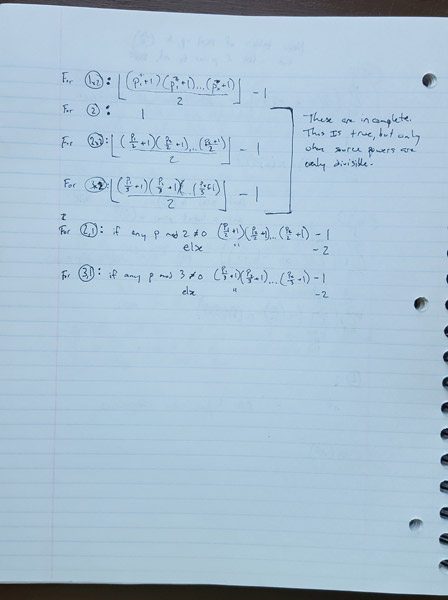 For (1,2): ⌊(p₁+1)(p₂+1)...(pₙ+1)/2⌋ - 1
For (2): 1
For (2,2): ⌊(p₁/2+1)(p₂/2+1)...(pₙ/2+1)/2⌋ - 1
For (3,2): ⌊(p₁/3+1)(p₂/3+1)(pₙ/3+1)/2⌋ - 1
These are incomplete.
This IS true, but only
when source powers are
evenly divisible.
For (2,1): if any p mod 2 ≠ 0 (p₁/2+1)(p₂/2+1)...(pₙ/2+1) - 1
else " - 2
For (3,1): if any p mod 3 ≠ 0 (p₁/3+1)(p₂/3+1)...(pₙ/3+1) - 1
else " - 2